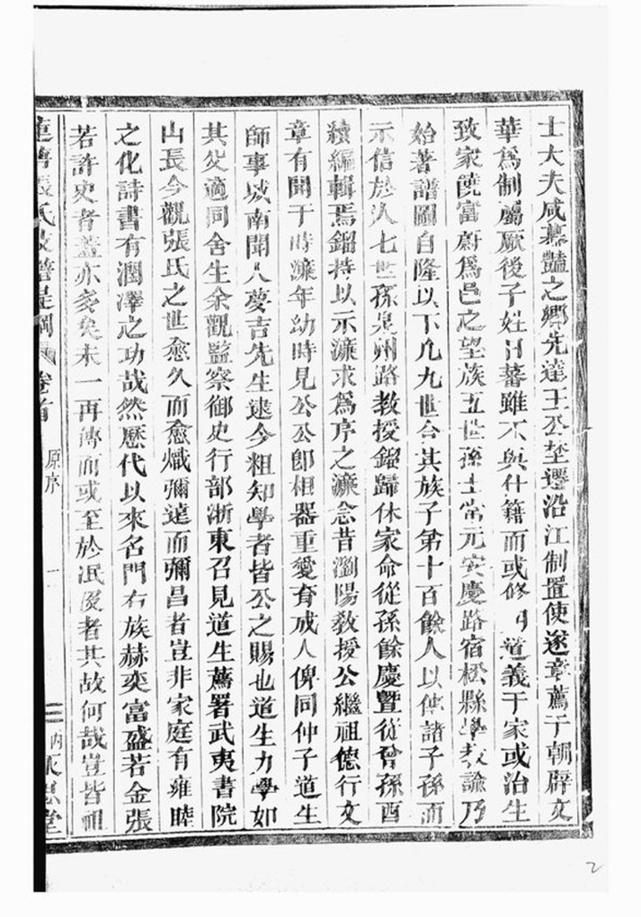 士大夫咸慕豔之鄉先達王丞埜遷沿江制置使遂章薦于朝辟文
華爲制屬厥後子姓日蕃雖不與仕籍而或修明道義于家或治生
致家饒富蔚爲邑之望族五世孫士常元安慶路宿松縣學教諭乃
始著譜圖自隆以下凡九世合其族子弟十百餘人以使諸子孫而
示信於人七世孫泉州路教授鎦歸休家命從孫餘慶暨從曾孫酉
續編輯焉鎦持以示濂求爲序之濂念昔瀏陽教授公繼祖德行文
章有聞于時濂年幼時見公公卽相器重愛育成人俾同仲子道生
師事城南聞人夢吉先生逮今粗知學者皆公之賜也道生力學如
其父適同舍生余觀監察御史行部浙東召見道生薦署武夷書院
山長今觀張氏之世愈久而愈熾彌遠而彌昌者豈非家庭有雍睦
之化詩書有潤澤之功哉然歷代以來名門右族赫奕富盛若金張
若許史者蓋亦多矣未一再傳而或至於泯沒者其故何哉豈皆祖
張氏 譜 卷首 原序 一 永思堂
2